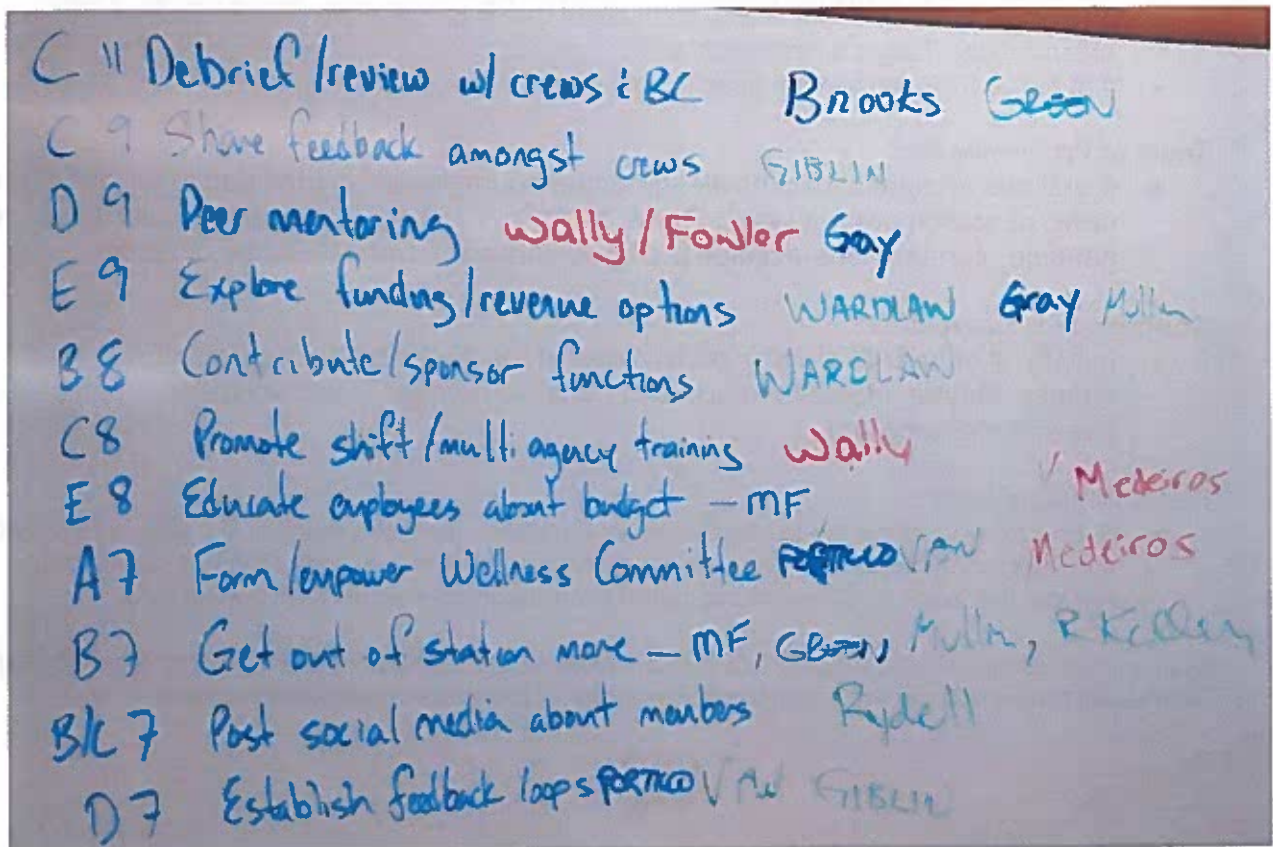 C 11 Debrief/review w/ crews & BC Brooks GREEN
C 9 Share feedback amongst crews GIBLIN
D 9 Peer mentoring Wally/Fowler Gray
E 9 Explore funding/revenue options WARDLAW Gray Mullin
B 8 Contribute/sponsor functions WARDLAW
C 8 Promote shift/multi agency training Wally
E 8 Educate employees about budget - MF Medeiros
A 7 Form/empower Wellness Committee PORTICO VAN Medeiros
B 7 Get out of station more - MF, GREEN, Mullin,
B/C 7 Post social media about members Rydell
D 7 Establish feedback loops PORTICO VAN GIBLIN